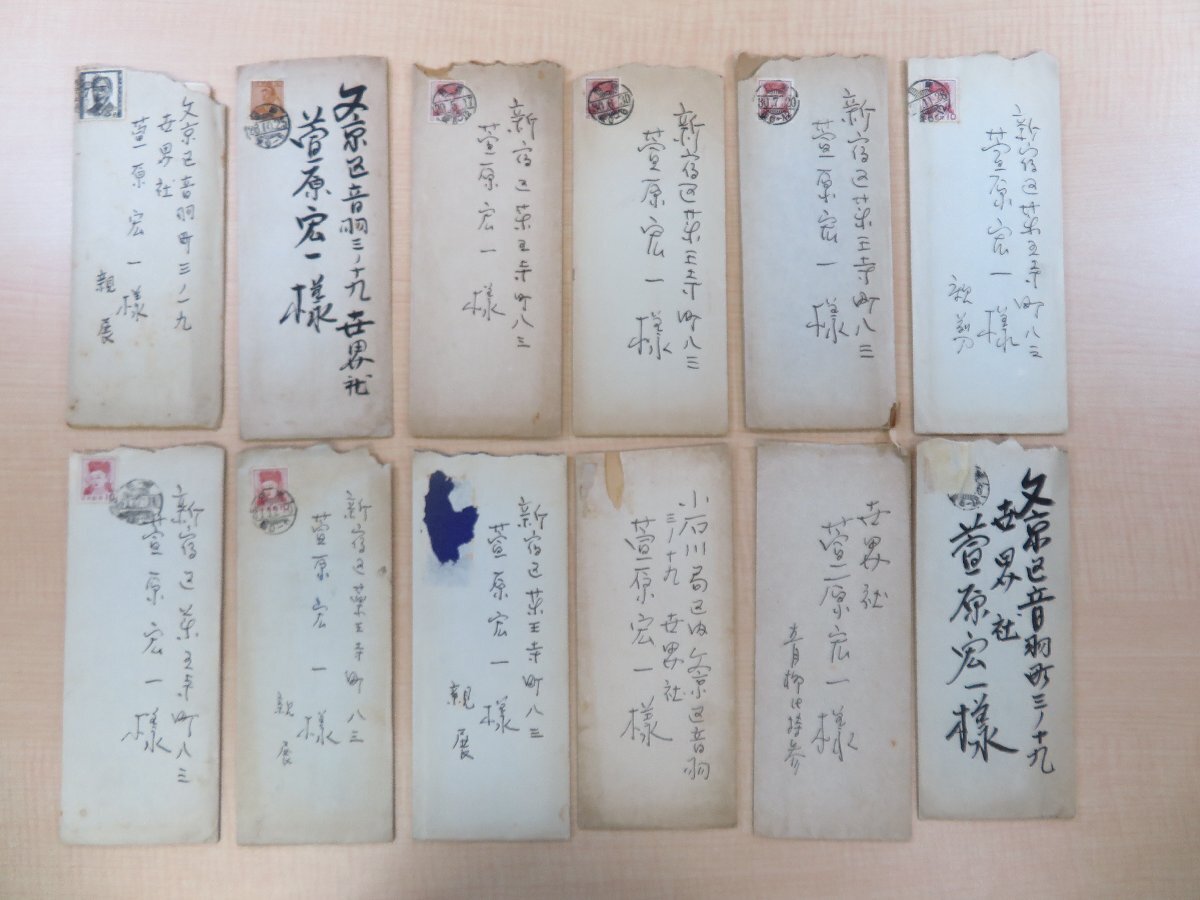 文京区音羽町三ノ一九
世界社
萱原宏一様
親展
文京区音羽三ノ十九 世界社
萱原宏一様
新宿区薬王寺町八三
萱原宏一様
新宿区薬王寺町八三
萱原宏一様
新宿区薬王寺町八三
萱原宏一様
新宿区薬王寺町八三
萱原宏一様
親剪
新宿区薬王寺町八三
萱原宏一様
新宿区薬王寺町八三
萱原宏一様
親展
新宿区薬王寺町八三
萱原宏一様
親展
小石川局区内文京区音羽
三ノ十九 世界社
萱原宏一様
世界社
萱原宏一様
文京区音羽町三ノ十九
世界社
萱原宏一様